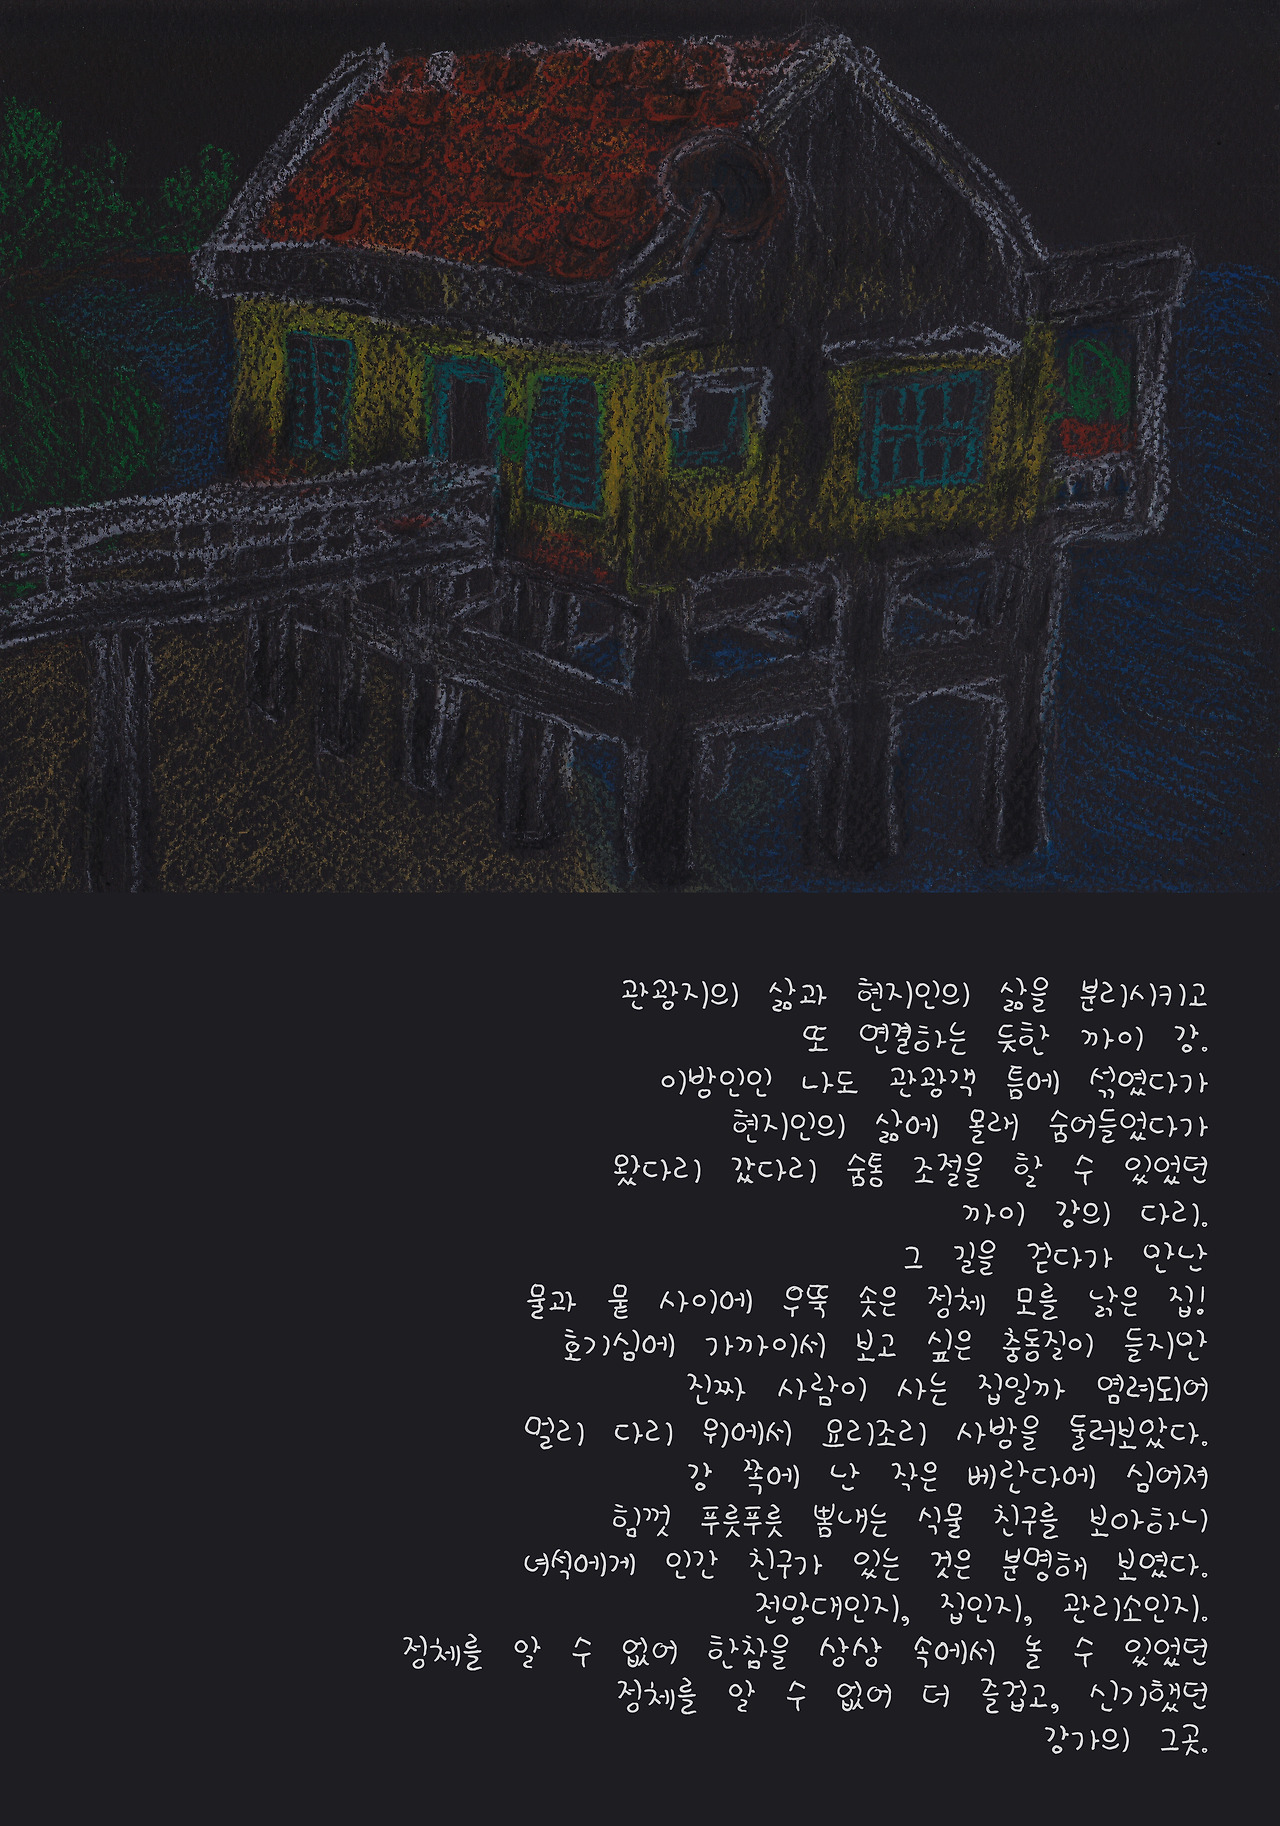 관광지의 삶과 현지인의 삶을 분리시키고
또 연결하는 듯한 까이 강.
이방인인 나도 관광객 틈에 섞였다가
현지인의 삶에 몰래 숨어들었다가
왔다리 갔다리 숨통 조절을 할 수 있었던
까이 강의 다리.
그 길을 걷다가 만난
물과 뭍 사이에 우뚝 솟은 정체 모를 낡은 집!
호기심에 가까이서 보고 싶은 충동질이 들지만
진짜 사람이 사는 집일까 염려되어
멀리 다리 위에서 요리조리 사방을 둘러보았다.
강 쪽에 난 작은 베란다에 심어져
힘껏 푸릇푸릇 뽐내는 식물 친구를 보아하니
녀석에게 인간 친구가 있는 것은 분명해 보였다.
전망대인지, 집인지, 관리소인지.
정체를 알 수 없어 한참을 상상 속에서 놀 수 있었던
정체를 알 수 없어 더 즐겁고, 신기했던
강가의 그곳.